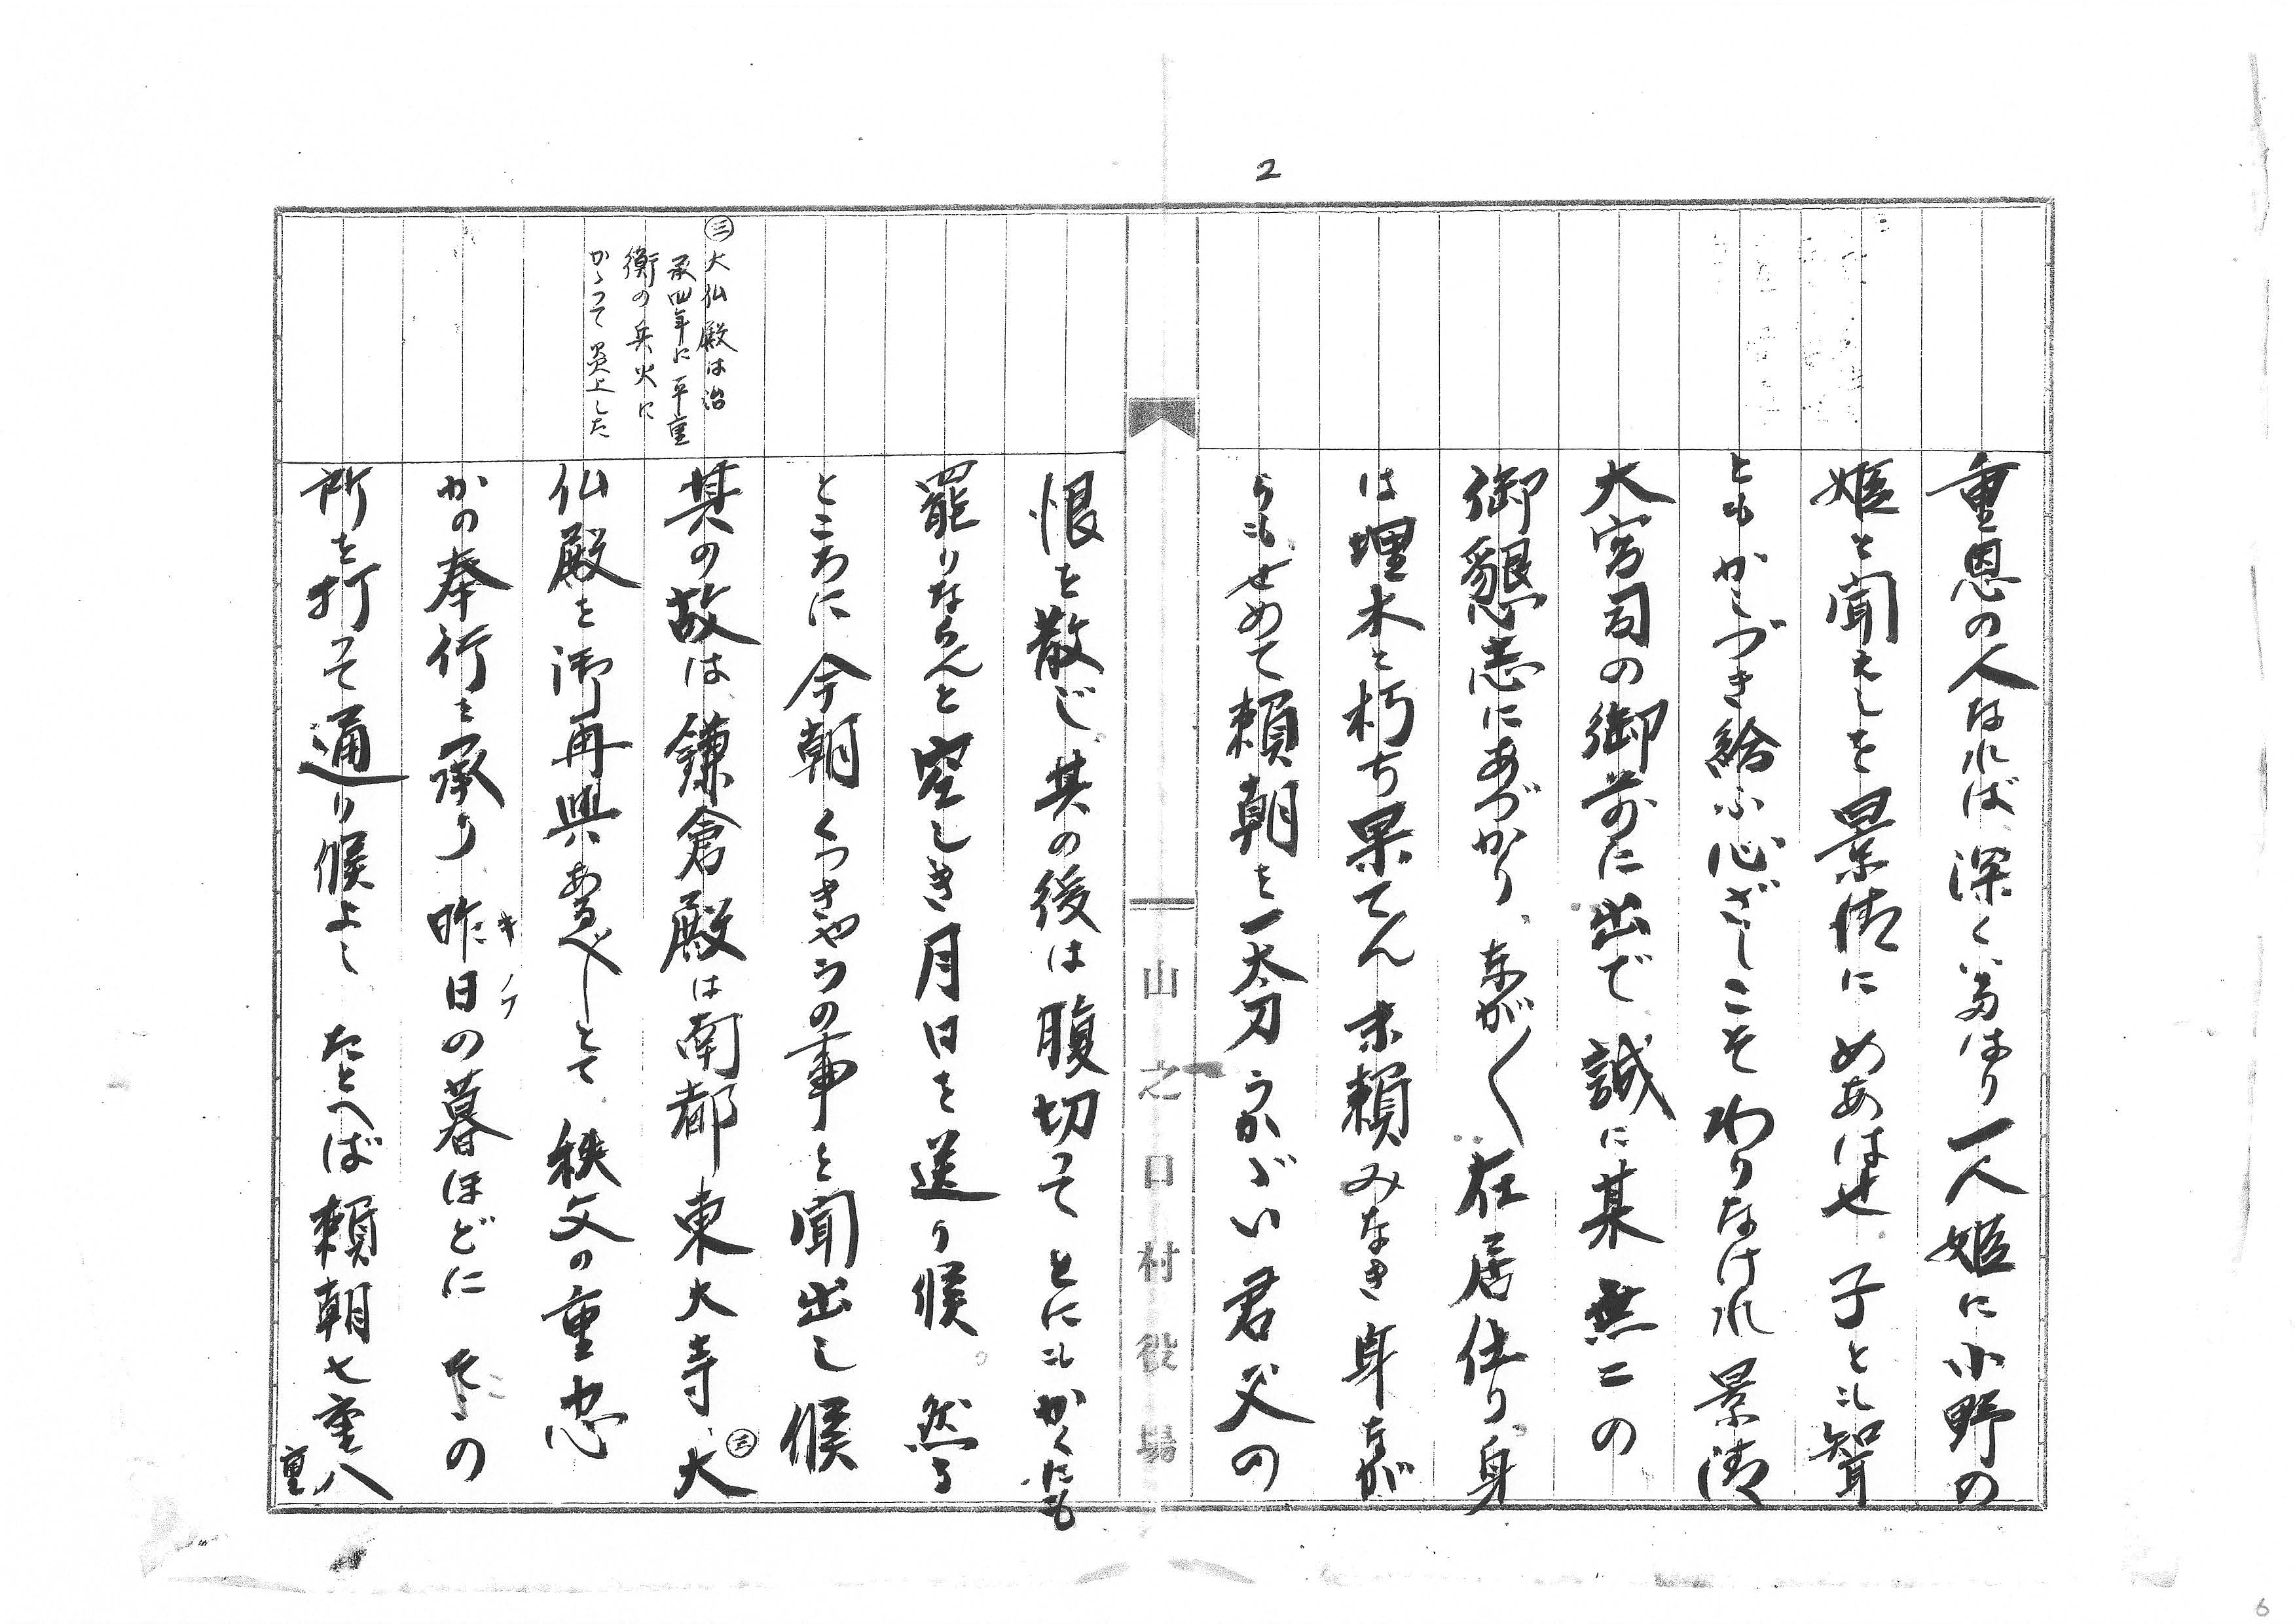 2
重恩の人なれば、深くいたはり一人姫に小野の
姫と聞えしを景清にめあはせ、子とも聟
ともかしづき給ふ心ざしこそわりなけれ景清
大宮司の御前に出で誠に某無二の
御懇志にあづかり、ながく在居仕り、身
は埋木と朽ち果てん末頼みなき身なが
らも、せめて頼朝を一太刀うかゞい君父の
山之口村役場
恨を散じ、其の後は腹切って とにもかくにも
罷りならんと空しき月日を送り候。然る
ところに今朝くつきやうの事を聞出し候
其の故は、鎌倉殿は南都東大寺、大
㊂
仏殿を御再興あるべしとて 秩父の重忠
かの奉行を承り昨日の暮ほどに の
キノフ
所を打って通り候よし たとへば頼朝七重八
重
㊂大仏殿は治
承四年に平重
衡の兵火に
かゝって炎上した
6